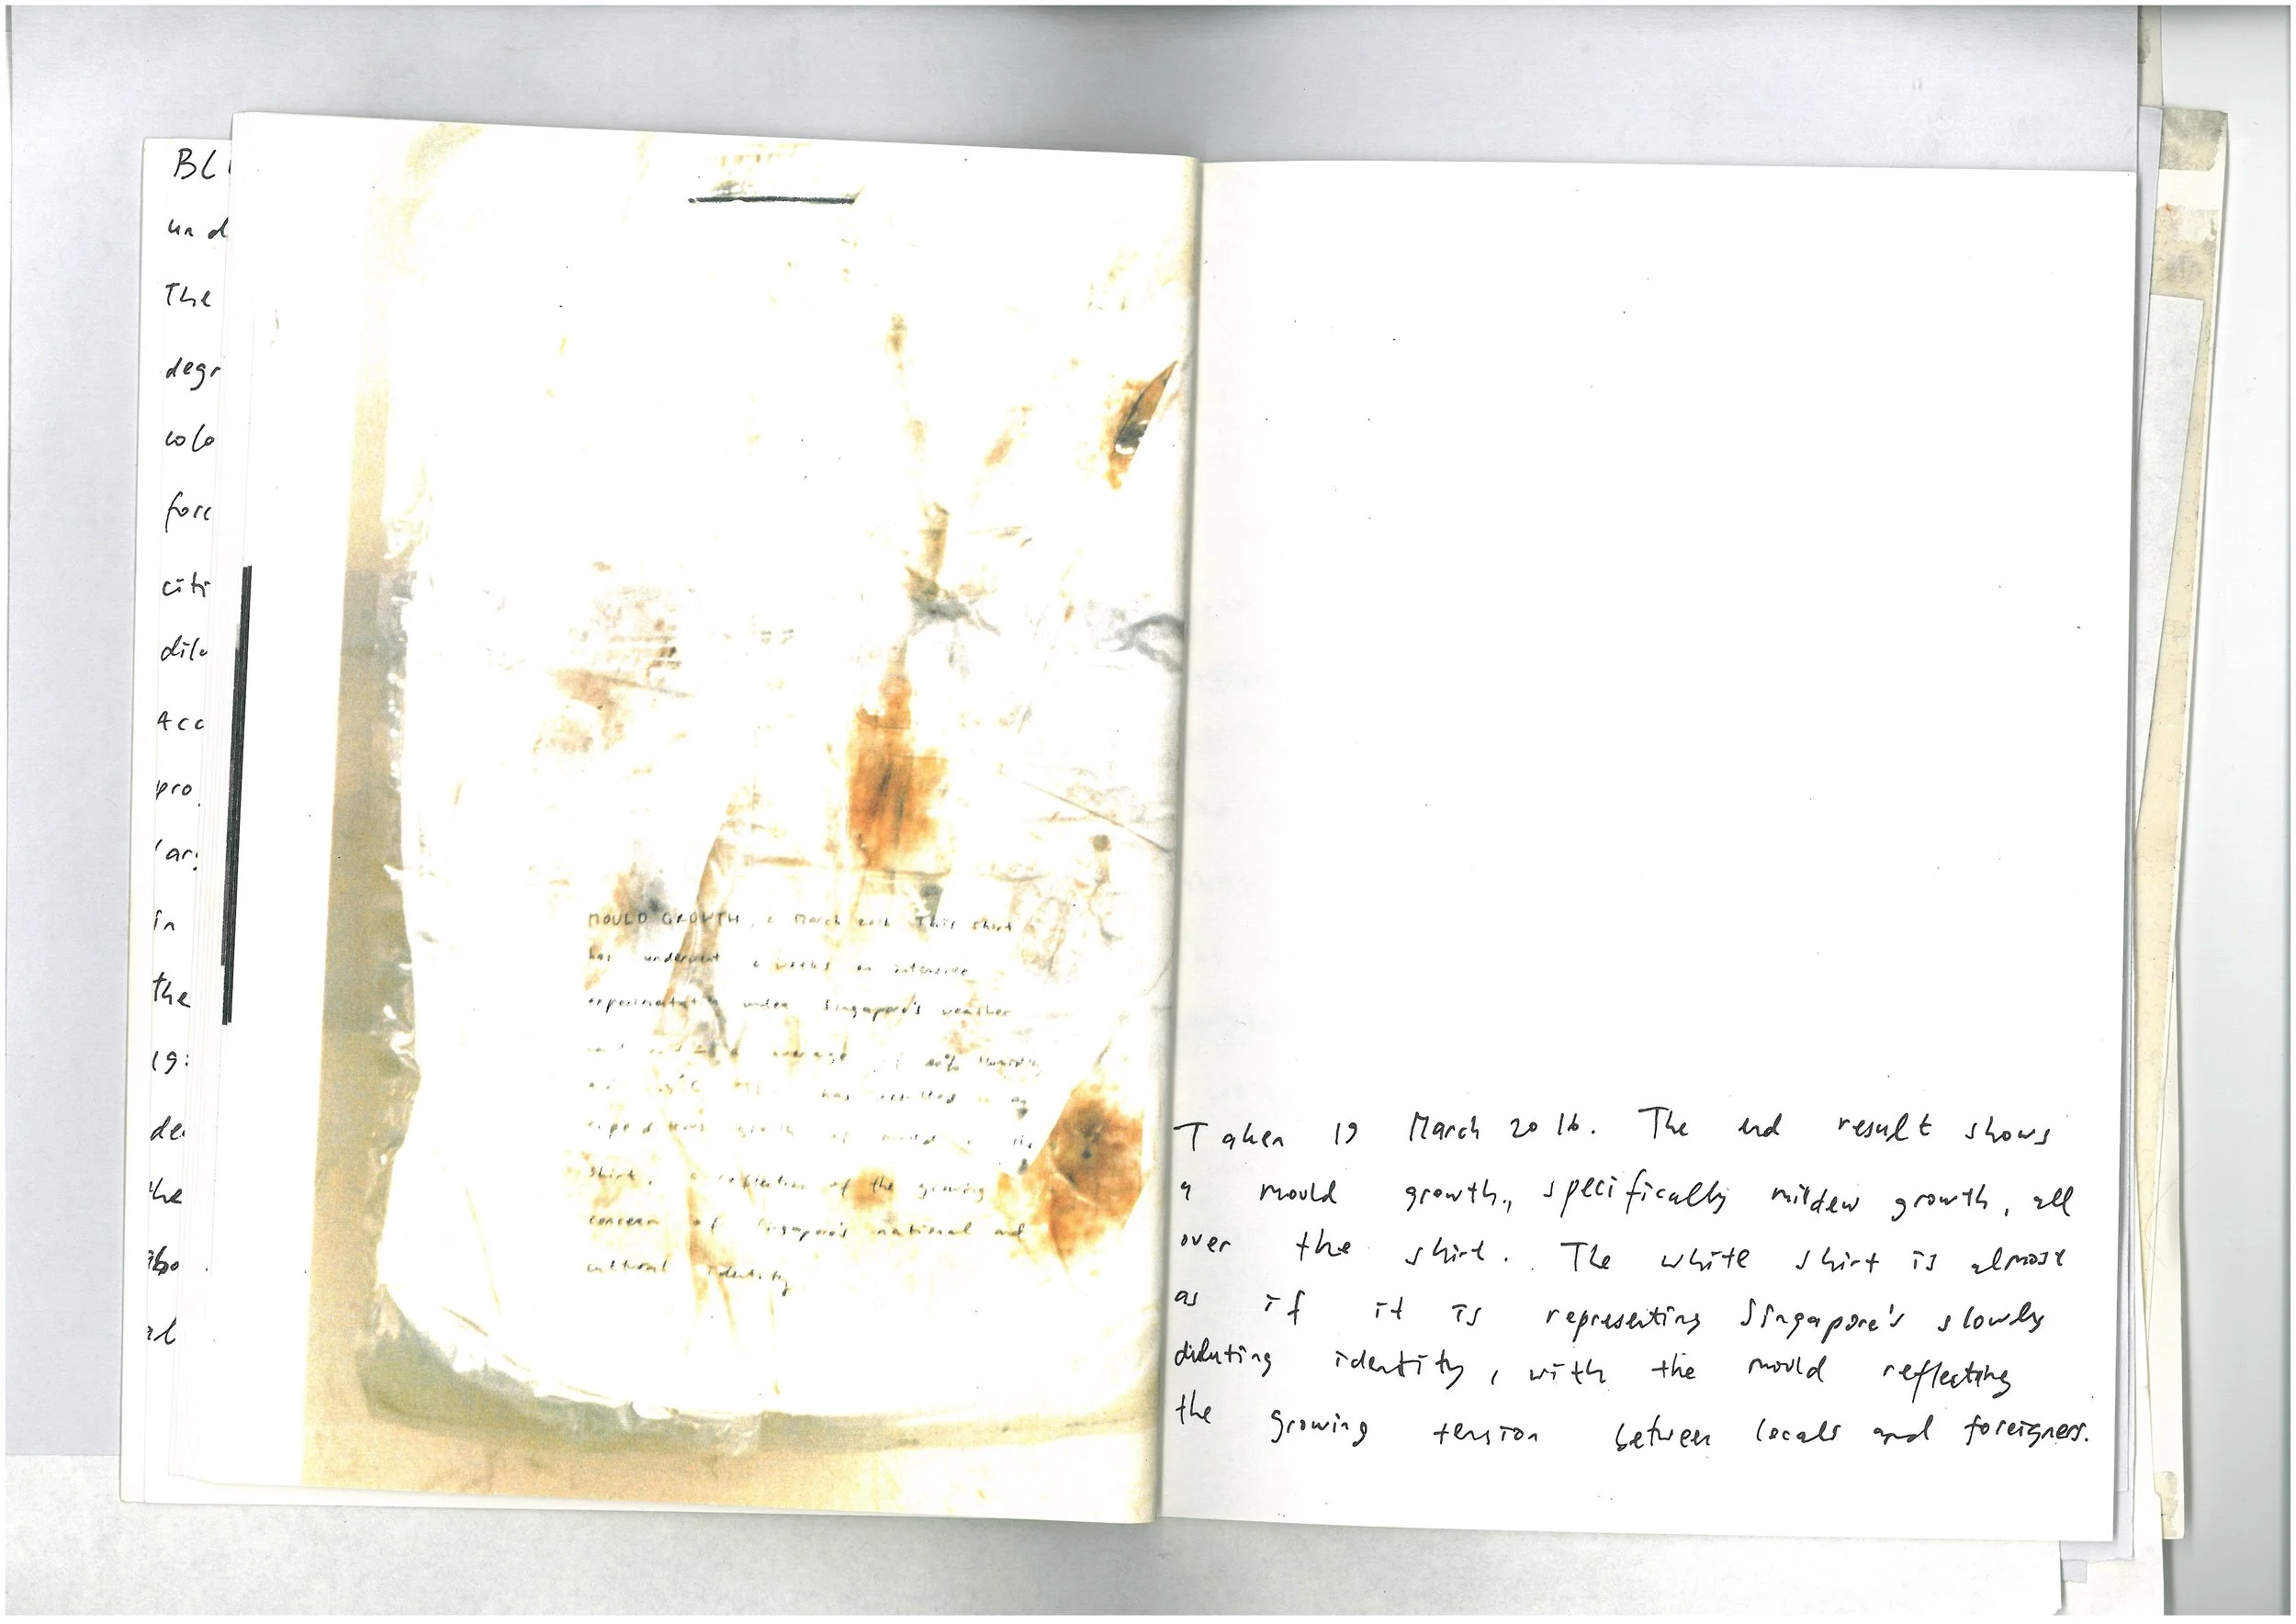 BL
und
The
degr
colo
forc
citi
dilu
Acc
pro
lar
in
the
19
de
the
abo
al
MOULD GROWTH, 2 March 2016 This shirt
has underwent 6 weeks on intensive
experimentation under Singapore's weather
average of 80% Humidity
has resulted in
growth of mould
shirt, a reflection of the growing
concern of Singapore's national and
cultural identity
Taken 19 March 2016. The end result shows
a mould growth, specifically mildew growth, all
over the shirt. The white shirt is almost
as if it is representing Singapore's slowly
diluting identity, with the mould reflecting
the growing tension between locals and foreigners.